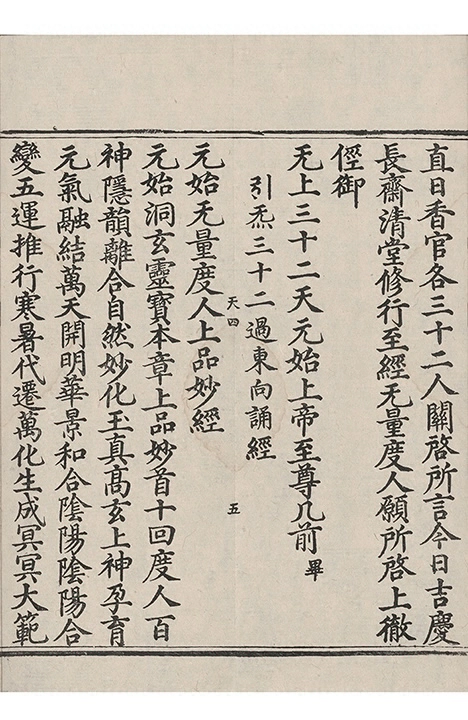 直日香官各三十二人關啓所言今日吉慶
長齋清堂修行至經无量度人願所啓上徹
徑御
无上三十二天元始上帝至尊几前畢
引炁三十二過東向誦經
天四 五
元始无量度人上品妙經
元始洞玄靈寶本章上品妙首十回度人百
神隱韻離合自然妙化玉真高玄上神孕育
元氣融結萬天開明華景和合陰陽陰陽合
變五運推行寒暑代遷萬化生成冥冥大範